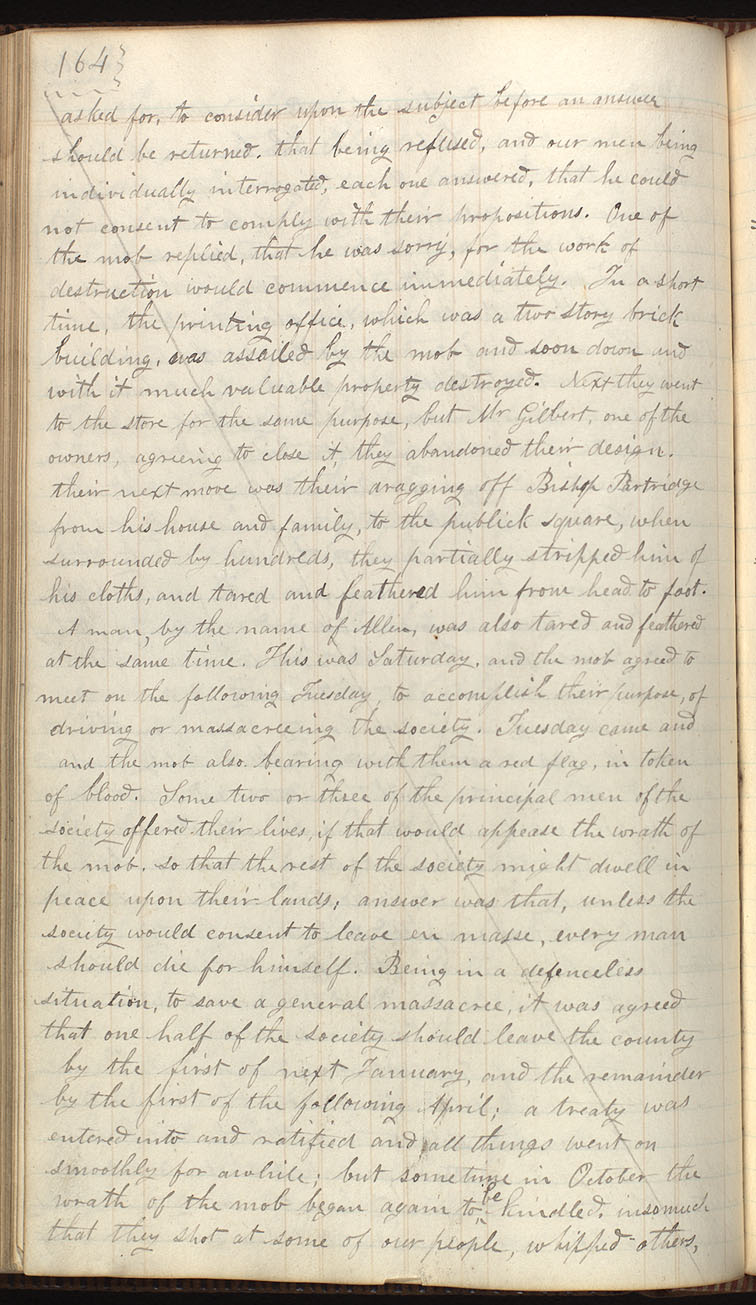 164
asked for, to consider upon the subject before an answer
should be returned. that being refused, and our men being
individually interrogated, each one answered, that he could
not consent to comply with their propositions. One of
the mob replied, that he was sorry, for the work of
destruction would commence immediately. In a short
time, the printing office, which was a two story brick
building, was assailed by the mob and soon down and
with it much valuable property destroyed. Next they went
to the store for the same purpose, but Mr Gilbert, one of the
owners, agreeing to close it, they abandoned their design.
their next move was their dragging off Bishop Partridge
from his house and family, to the publick square, when
surrounded by hundreds, they partially stripped him of
his cloths, and tared and feathered him from head to foot.
A man, by the name of Allen, was also tared and feathered
at the same time. This was Saturday, and the mob agreed to
meet on the following Tuesday, to accomplish their purpose, of
driving or massacreeing the society. Tuesday came and
and the mob also. bearing with them a red flag, in token
of blood. Some two or three of the principal men of the
society offered their lives, if that would appease the wrath of
the mob. so that the rest of the society might dwell in
peace upon their lands; answer was that, unless the
society would consent to leave en masse, every man
should die for himself. Being in a defenceless
situation, to save a general massacree, it was agreed
that one half of the society should leave the county
by the first of next January, and the remainder
by the first of the following April; a treaty was
entered into and ratified and all things went on
smoothly for awhile; but sometime in October the
wrath of the mob began again to be kindled. insomuch
that they shot at some of our people, whipped others,